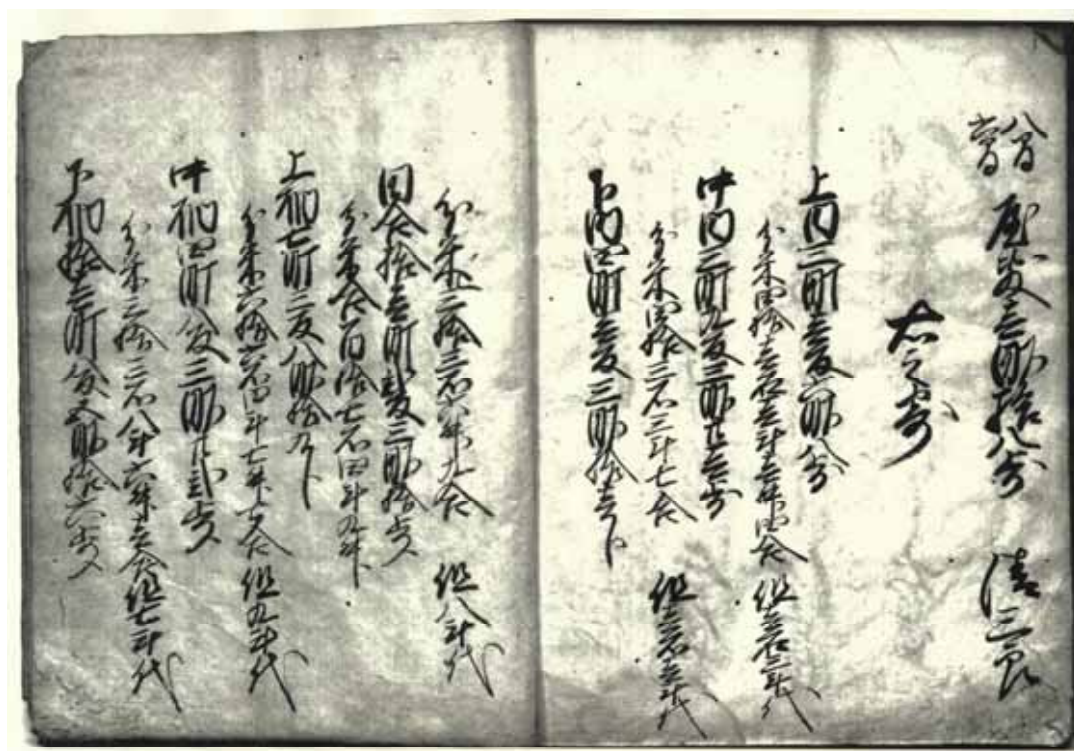 八間
六間
屋敷壱畝拾八歩 清三郎
右之寄
上田三町壱反六畝八歩
分米四拾壱石壱斗壱升四合 但壱石三斗代
中田三町九反三畝廿壱歩
分米四拾三石三斗七合 但壱石壱斗代
下田四町壱反三畝拾壱歩
分米三拾三石六升九合 但八斗代
田合拾壱町弐反三畝拾歩
分米合百拾七石四斗九升
上畑七町三反八畝拾九歩
分米六拾六石四斗七升七合 但九斗代
中畑四町八反三畝廿弐歩
分米三拾三石八斗六升壱合 但七斗代
下畑拾三町八反五畝拾六歩